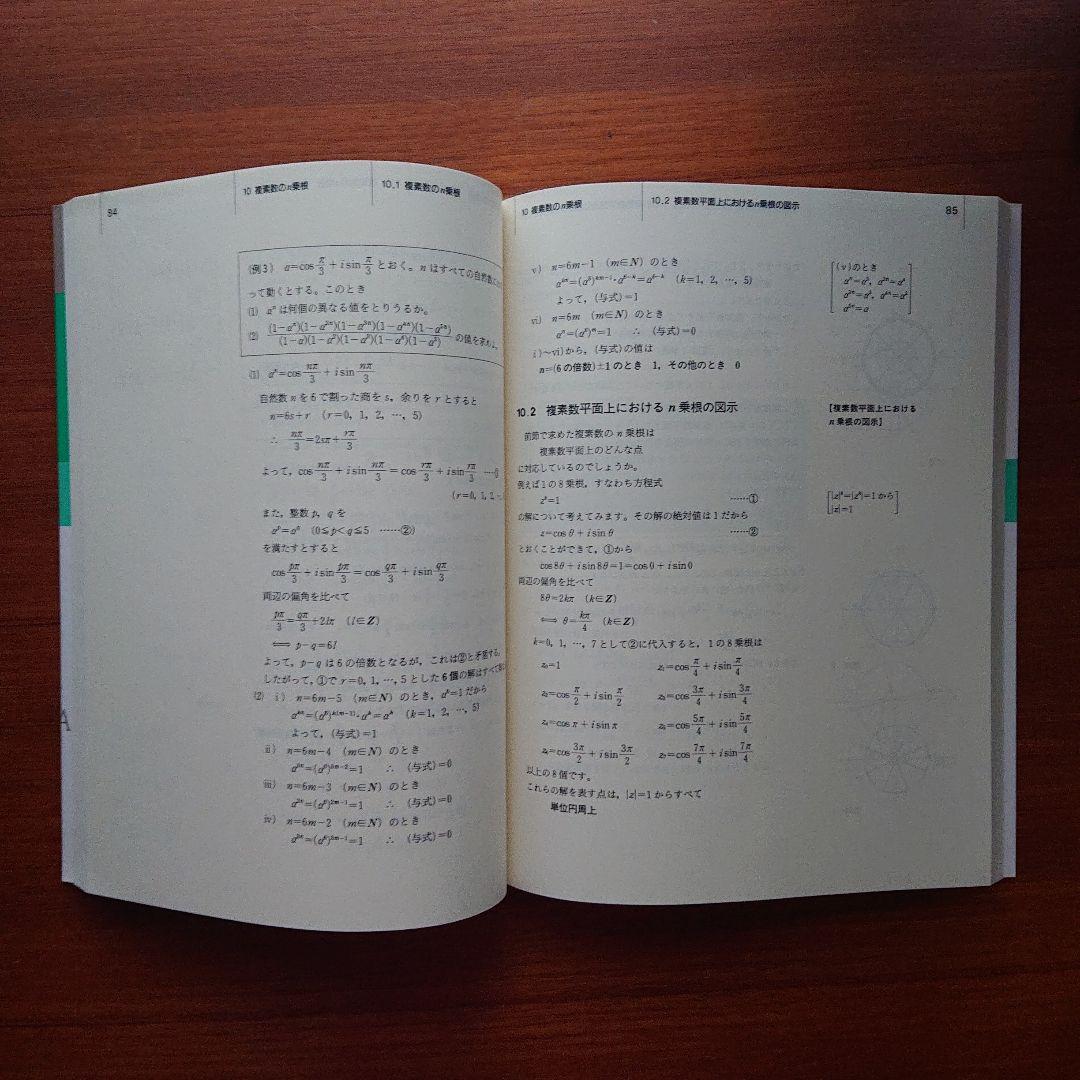 84
10 複素数のn乗根
10.1 複素数のn乗根
(例3) α=cos π/3 + i sin π/3 とおく。n はすべての自然数
って動くとする。このとき
(1) αⁿ は何個の異なる値をとりうるか。
(2) (1−αⁿ)(1−α²ⁿ)(1−α³ⁿ)(1−α⁴ⁿ)(1−α⁵ⁿ)/(1−α)(1−α²)(1−α³)(1−α⁴)(1−α⁵) の値を求めよ。
(1) αⁿ=cos nπ/3 + i sin nπ/3
自然数 n を6で割った商を s, 余りを r とすると
n=6s+r (r=0, 1, 2, …, 5)
∴ nπ/3=2sπ+rπ/3
よって, cos nπ/3 + i sin nπ/3 = cos rπ/3 + i sin rπ/3
(r=0, 1, 2,
また, 整数 p, q を
(0≦p<q≦5 ……②)
を満たすとすると
cos pπ/3 + i sin pπ/3 = cos qπ/3 + i sin qπ/3
両辺の偏角を比べて
pπ/3=qπ/3+2lπ (l∈Z)
⟺ p−q=6l
よって, p−q は6の倍数となるが, これは②と矛盾する。
したがって, ①で r=0, 1, …, 5 とした6個の解はすべて
(2) i) n=6m−5 (m∈N) のとき, α⁶=1 だから
(k=1, 2, …, 5)
よって, (与式)=1
ii) n=6m−4 (m∈N) のとき
∴ (与式)=0
iii) n=6m−3 (m∈N) のとき
∴ (与式)=0
iv) n=6m−2 (m∈N) のとき
∴ (与式)=0
10 複素数のn乗根
10.2 複素数平面上におけるn乗根の図示
85
v) n=6m−1 (m∈N) のとき
(k=1, 2, …, 5)
よって, (与式)=1
vi) n=6m (m∈N) のとき
αⁿ=(α⁶)ᵐ=1 ∴ (与式)=0
i)〜vi)から, (与式)の値は
n=(6の倍数)±1のとき 1, その他のとき 0
(v)のとき
10.2 複素数平面上における n 乗根の図示
[複素数平面上における
n乗根の図示]
前節で求めた複素数の n 乗根は
複素数平面上のどんな点
に対応しているのでしょうか。
例えば1の8乗根, すなわち方程式
z⁸=1 ……①
の解について考えてみます。その解の絶対値は1だから
z=cos θ + i sin θ ……②
|z|⁸=|z⁸|=1から
|z|=1
とおくことができて, ①から
cos 8θ + i sin 8θ=1=cos 0 + i sin 0
両辺の偏角を比べて
8θ=2kπ (k∈Z)
⟺ θ=kπ/4 (k∈Z)
k=0, 1, …, 7 として②に代入すると, 1の8乗根は
z₀=1 z₁=cos π/4 + i sin π/4
z₂=cos π/2 + i sin π/2 z₃=cos 3π/4 + i sin 3π/4
z₄=cos π + i sin π z₅=cos 5π/4 + i sin 5π/4
z₆=cos 3π/2 + i sin 3π/2 z₇=cos 7π/4 + i sin 7π/4
以上の8個です。
これらの解を表す点は, |z|=1 からすべて
単位円周上